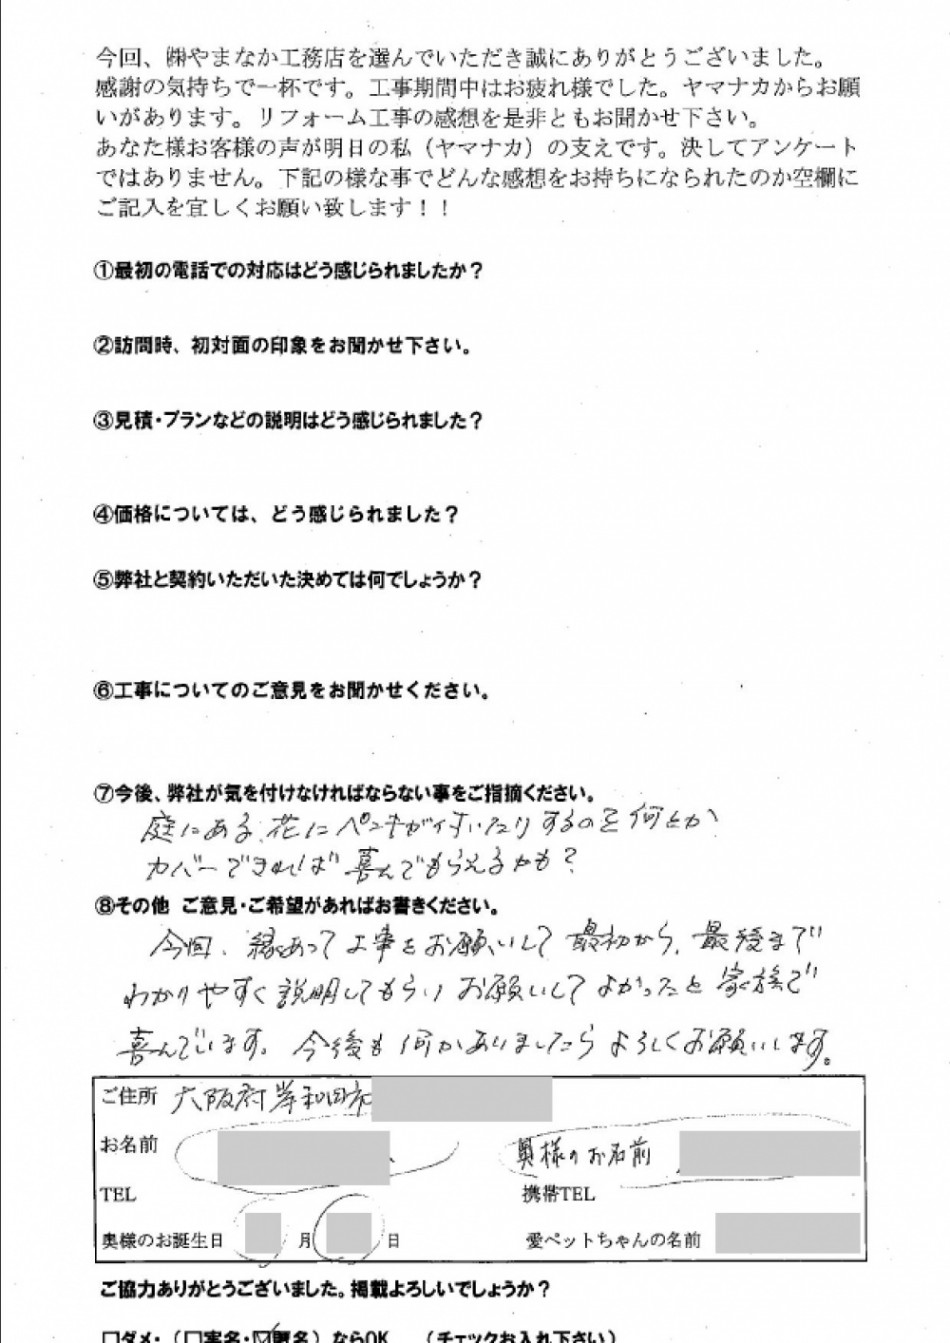 今回、㈱やまなか工務店を選んでいただき誠にありがとうございました。
感謝の気持ちで一杯です。工事期間中はお疲れ様でした。ヤマナカからお願
いがあります。リフォーム工事の感想を是非ともお聞かせ下さい。
あなた様お客様の声が明日の私（ヤマナカ）の支えです。決してアンケート
ではありません。下記の様な事でどんな感想をお持ちになられたのか空欄に
ご記入を宜しくお願い致します！！
①最初の電話での対応はどう感じられましたか？
②訪問時、初対面の印象をお聞かせ下さい。
③見積・プランなどの説明はどう感じられました？
④価格については、どう感じられました？
⑤弊社と契約いただいた決めては何でしょうか？
⑥工事についてのご意見をお聞かせください。
⑦今後、弊社が気を付けなければならない事をご指摘ください。
庭にある、花にペンキが付いたりするのを何とか
カバーできれば喜んでもらえるかも？
⑧その他 ご意見・ご希望があればお書きください。
今回、縁あって工事をお願いして最初から、最後まで
わかりやすく説明してもらいお願いしてよかったと家族で
喜んでいます。今後も何かありましたらよろしくお願いします。
ご住所 大阪府岸和田市
お名前 奥様のお名前
TEL 携帯TEL
奥様のお誕生日 月 日 愛ペットちゃんの名前
ご協力ありがとうございました。掲載よろしいでしょうか？
□ダメ・（□実名・☑匿名）ならOK （チェックお入れ下さい）